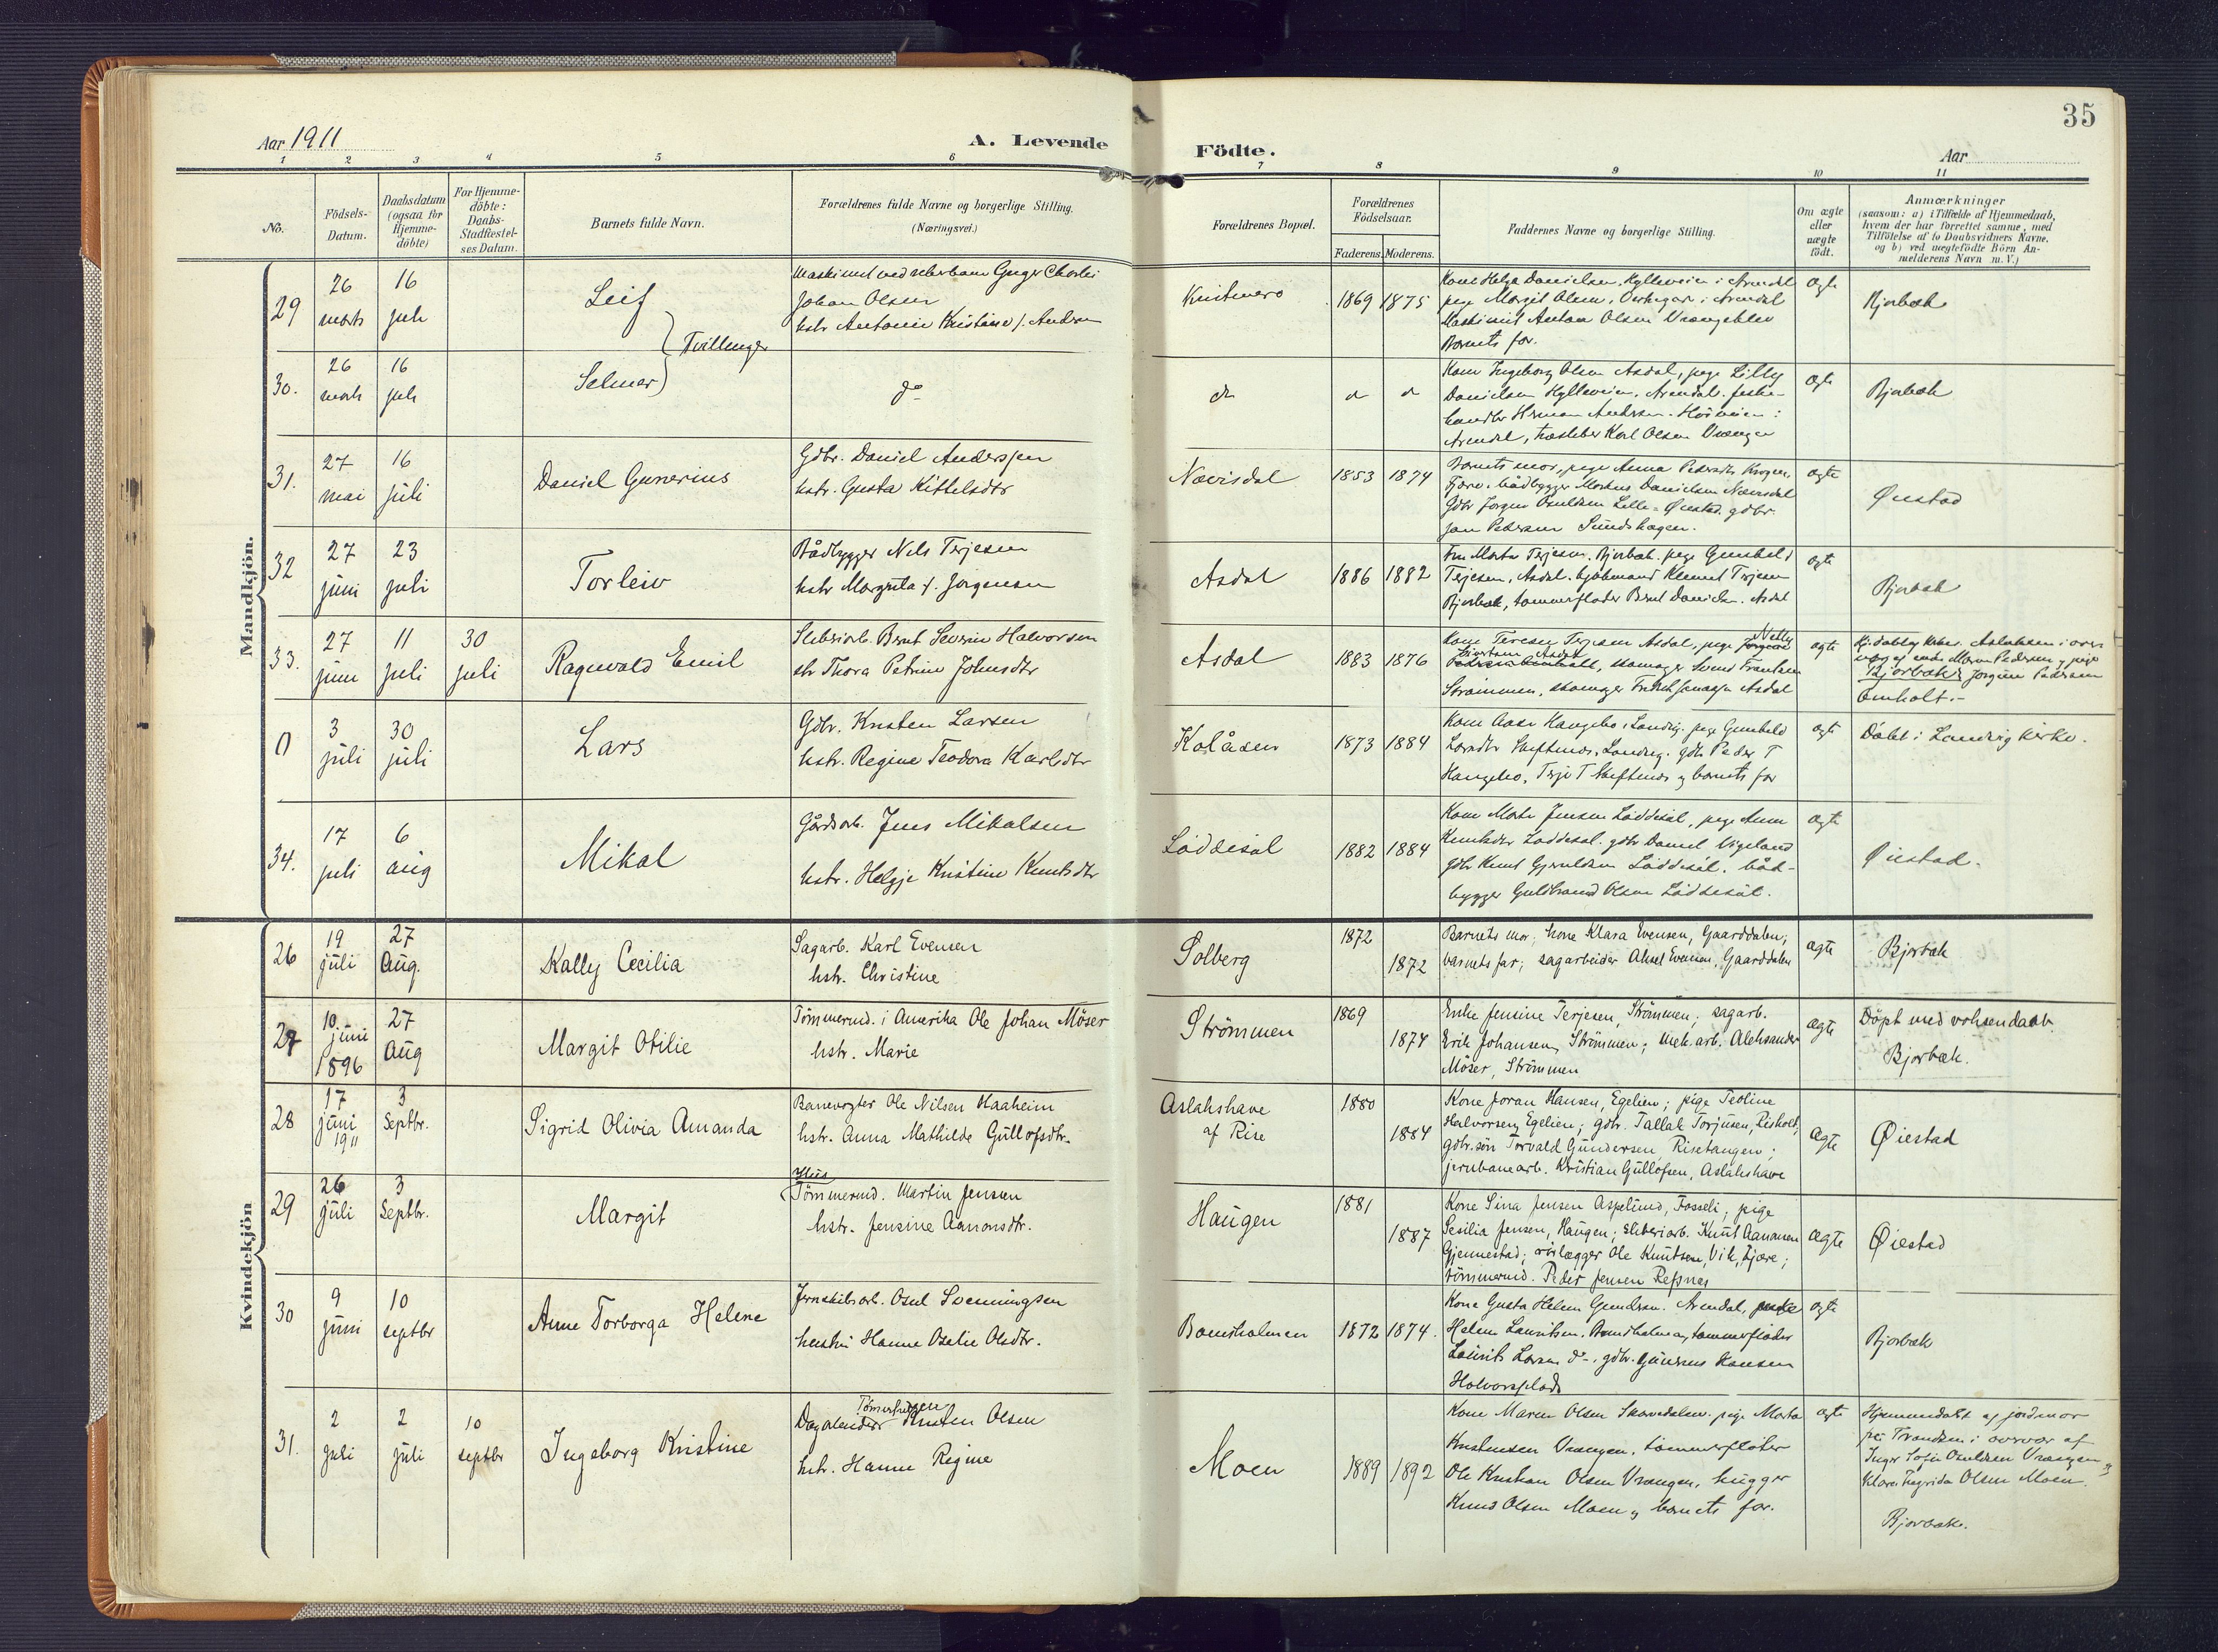 35
Aar 1911
A. Levende
Födte.
Aar
1 2 3 4 5 6 7 8 9 10 11
No.
Födsels-
Datum.
Daabsdatum
(ogsaa for
Hjemme-
döbte)
For Hjemme-
döbte:
Daabs-
Stadfæstel-
ses Datum.
Barnets fulde Navn.
Forældrenes fulde Navne og borgerlige Stilling.
(Næringsvei.)
Forældrenes Bopæl.
Forældrenes
Födselsaar.
Faderens. Moderens.
Faddernes Navne og borgerlige Stilling.
Om ægte
eller
uægte
födt.
Anmærkninger
(saasom: a) i Tilfælde af Hjemmedaab,
hvem der har forrettet samme, med
Tilföielse af to Daabsvidners Navne,
og b) ved uægtefödte Börn An-
melderens Navn m. V.)
Mandkjön.
29
26
marts
16
juli
Leif
Tvillinger
Johan Olsen
hstr Antonie Kristine f. Andersen
1869 1875
Kone Helga Danielsen, Hylleveien i Arendal
pige Margit Olsen, i Arendal
Maskinist Anton Olsen
Barnets far.
ægte
Bjorbæk
30.
26
marts
16
juli
Selmer
do
do
Kone Ingeborg Olsen Asdal, pige Lilly
Danielsen Hylleveien, Arendal. fiske-
handler Herman Andersen
Arendal, Karl Olsen
ægte
Bjorbæk
31.
27
mai
16
juli
Daniel Gunerius
Gdbr. Daniel Anderssen
hstr. Gusta Kittelsdtr
Nævisdal
1853 1874
Barnets mor, pige Anna
Fjære. bådbygger Markus Danielsen Nævisdal
Gdbr Jorgen Osuldsen Lille-Øiestad. gdbr.
Jan Pedersen Sundshagen.
ægte
Øiestad
32
27
juni
23
juli
Torleiv
Bådbygger Nils Terjesen
hstr Margrete f. Jorgensen
Asdal
1886 1882
Fru Marta Terjesen, Bjorbæk. pige Gunhild
Terjesen, Asdal. Klemet Terjesen
Bjorbæk, tommerfloder Bernt Danielsen. Asdal
ægte
Bjorbæk
33.
27
juni
11
juli
30
juli
Ragnvald Emil
Sliberiarb. Bernt Severin Halvorsen
hstr Thora Petrine Johnsdtr
Asdal
1883 1876
Kone Terese Terjesen Asdal, pige Nelly
Sivertsen, Asdal
skomager Svend Frantsen
Strömmen, skomager Asdal
ægte
Bjorbæk
Jorgine Pedersen
Omholt.-
0
3
juli
30
juli
Lars
Gdbr. Kristen Larsen
hstr. Regine Teodora Karlsdtr
Kolåsen
1873 1884
Kone Aase Haugebo, Landvig. pige Gunhild
Larsdtr Landvig. gdbr Peder T
Haugebo, Terje T og barnets far
ægte
Döbt i Landvig kirke.
34.
17
juli
6
aug
Mikal
Gårdsarb. Jens Mikalsen
hstr. Helgje Kristine Knutsdtr
Löddesöl
1882 1884
Kone Marta Jensen Löddesöl, pige Anna
Knutsdtr Löddesöl. gdbr Daniel Vigeland
gdbr Knut Gjeruldsen Löddesöl. båd-
bygger Guldbrand Olsen Löddesöl.
ægte
Øiestad.
Kvindekjön
26
19
juli
27
Aug.
Kally Cecilia
Sagarb. Karl Evensen
hstr. Christine
Solberg
1872
1872
Barnets mor; kone Klara Evensen, Gaarddalen;
barnets far; sagarbeider Aksel Evensen, Gaarddalen
ægte
Bjorbæk
27
10.
juni
1896
27
Aug
Margit Otilie
Tömmermd. i Amerika Ole Johan Möser
hstr. Marie
Strömmen
1869
1874
Enke Jensine Terjesen, Strömmen; sagarb.
Erik Johansen, Strömmen; mek. arb. Aleksander
Möser, Strömmen
ægte
Döpt med voksendaab.
Bjorbæk.
28
17
juni
1911
3
Septbr.
Sigrid Olivia Amanda
Banevogter Ole Nilsen Haaheim
hstr. Anna Mathilde Gullofsdtr.
Aslakshave
af Rise
1880
1884
Kone Joran Hansen, Egelien; pige Teoline
Halvorsen, Egelien; gdbr. Tallak Torjusen, Risholt;
gdbr.sön Torvald Gundersen Risetangen;
jernbanearb. Kristian Gullofsen, Aslakshave
ægte
Øiestad
29
26
juli
3
Septbr.
Margit
Hus
Tömmermd. Martin Jensen
hstr. Jensine Aanonsdtr.
Haugen
1881
1887
Kone Sina Jensen Asplund, Fosseli; pige
Sesilia Jensen, Haugen; sliberiarb. Knut Aanonsen
Gjennestad; rörlægger Ole Knutsen, Vik, Fjære;
tömmermd. Peder Jensen Refsnes
ægte
Øiestad
30
9
juni
10
septbr
Anne Torborga Helene
Jernskibsarb. Osul Svenningsen
hustru Hanne Oselie Olsdtr.
Bomsholmen
1872 1874.
Kone Gusta Helene Gundersen. Arendal, pige
Helene Lauritsen, Bomsholmen, tommerfloder
Laurits Larsen do-, gdbr. Gunerius Hansen
Halvorsplads
ægte
Bjorbæk
31.
2
juli
2
juli
10
septbr
Ingeborg Kristine
Dagarbeider Kristen Olsen
hstr. Hanne Regine
Moen
1889 1892
Kone Maren Olsen pige Marta
Kristensen Vrængen, tömmerfloter
Ole Kristian Olsen Vrængen, hugger
Knud Olsen Moen og barnets far.
ægte
Hjemmedöbt af jordmor
frk Trondsen i overvær af
Inger Sofie Osuldsen Vrængen og
Klara Ingrida Olsen Moen.
Bjorbæk.